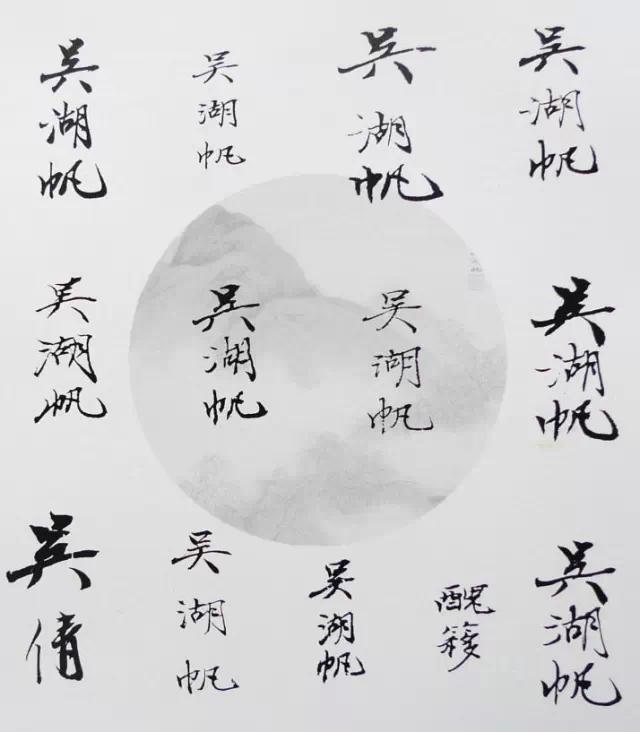 吴湖帆
吴湖帆
吴湖帆
吴湖帆
吴湖帆
吴湖帆
吴湖帆
吴湖帆
吴倩
吴湖帆
吴湖帆
醜簃
吴湖帆